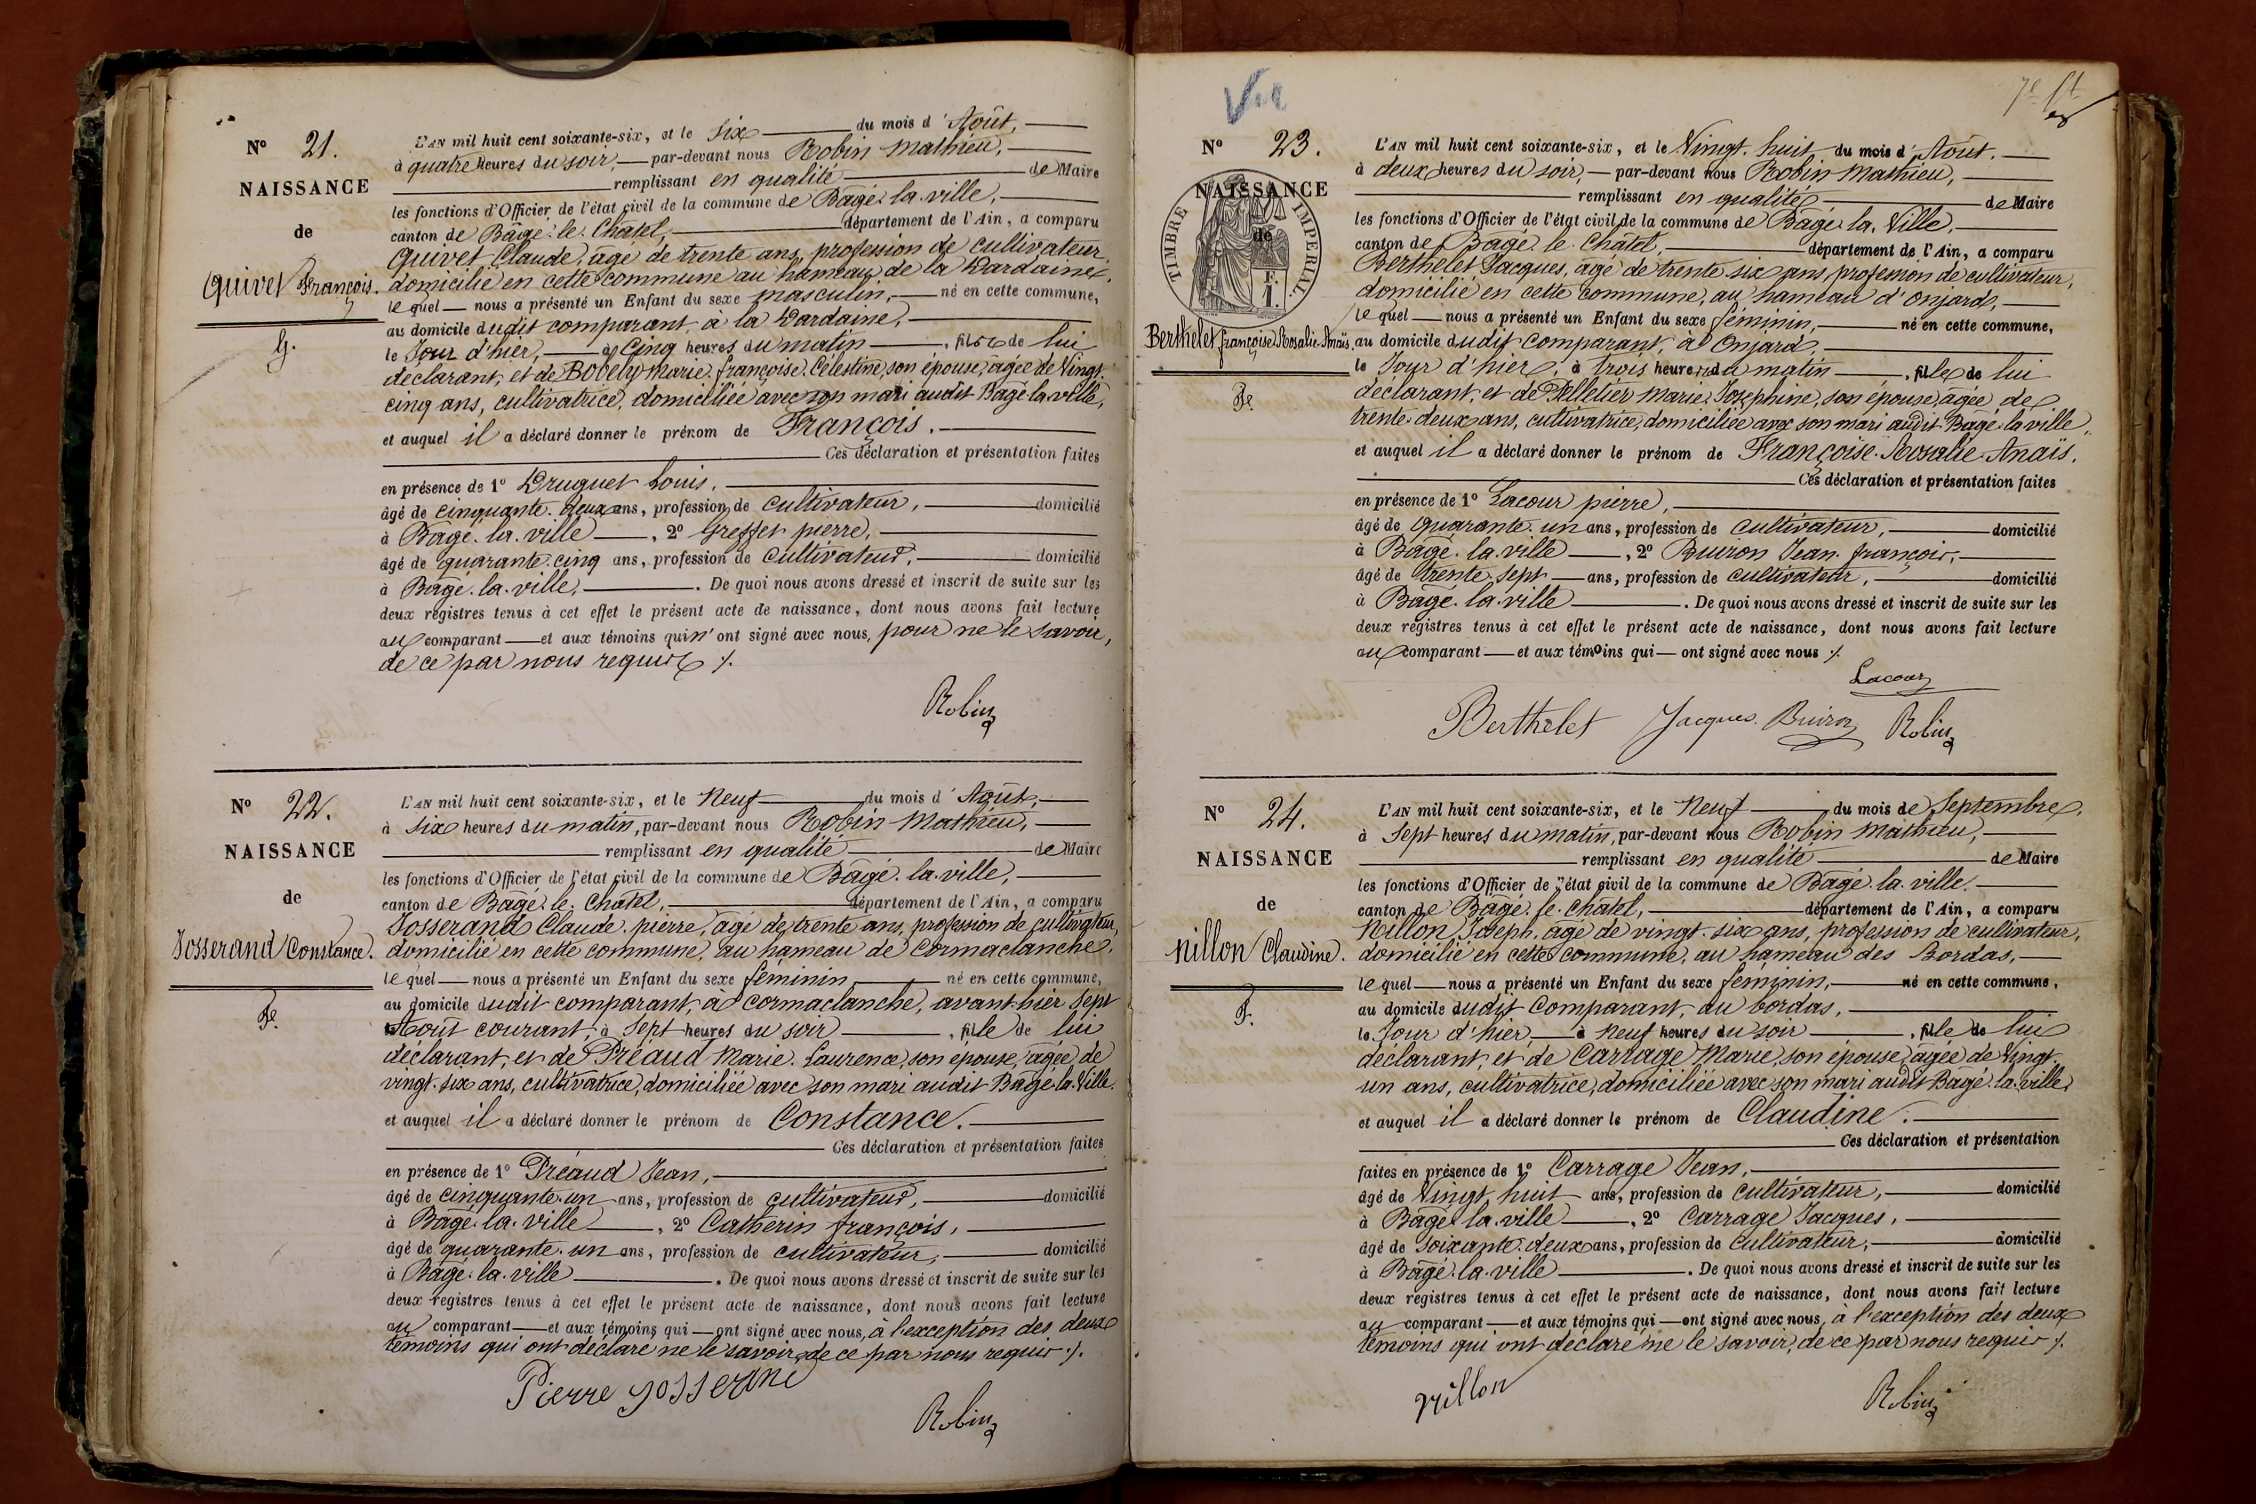 N° 21.
NAISSANCE
de
Quivet François.
G.
L'AN mil huit cent soixante-six, et le six du mois d'Août,
à quatre heures du soir, par-devant nous Robin Mathieu,
remplissant en qualité de Maire
les fonctions d'Officier de l'état civil de la commune de Bâgé-la-ville,
canton de Bâgé-le-Châtel, département de l'Ain, a comparu
Quivet Claude, âgé de trente ans, profession de cultivateur,
domicilié en cette commune au hameau de la Dardaine,
lequel nous a présenté un Enfant du sexe masculin, né en cette commune,
au domicile dudit comparant, à la Dardaine,
le Jour d'hier, à cinq heures du matin, fils de lui
déclarant, et de Bovely Marie-françoise-Célestine, son épouse, âgée de Vingt-
cinq ans, cultivatrice, domiciliée avec son mari audit Bâgé-la-ville,
et auquel il a déclaré donner le prénom de François.
Ces déclaration et présentation faites
en présence de 1° Druguet Louis,
âgé de cinquante-deux ans, profession de cultivateur, domicilié
à Bâgé-la-ville, 2° Greffet pierre,
âgé de quarante-cinq ans, profession de cultivateur, domicilié
à Bâgé-la-ville. De quoi nous avons dressé et inscrit de suite sur les
deux registres tenus à cet effet le présent acte de naissance, dont nous avons fait lecture
au comparant et aux témoins qui n'ont signé avec nous, pour ne le savoir,
de ce par nous requis ./.
Robin
N° 22.
NAISSANCE
de
Josserand Constance.
Fe.
L'AN mil huit cent soixante-six, et le Neuf du mois d'Août,
à six heures du matin, par-devant nous Robin Mathieu,
remplissant en qualité de Maire
les fonctions d'Officier de l'état civil de la commune de Bâgé-la-ville,
canton de Bâgé-le-Châtel, département de l'Ain, a comparu
Josserand Claude-pierre, âgé de trente ans, profession de cultivateur,
domicilié en cette commune, au hameau de Cormaclanche,
lequel nous a présenté un Enfant du sexe féminin né en cette commune,
au domicile dudit comparant, à Cormaclanche, avant-hier sept
Août courant, à Sept heures du soir, fille de lui
déclarant, et de Préaud Marie-Laurence, son épouse, âgée de
vingt-six ans, cultivatrice, domiciliée avec son mari audit Bâgé-la-Ville.
et auquel il a déclaré donner le prénom de Constance.
Ces déclaration et présentation faites
en présence de 1° Préaud Jean,
âgé de cinquante-un ans, profession de cultivateur, domicilié
à Bâgé-la-ville, 2° Catherin françois,
âgé de quarante-un ans, profession de cultivateur, domicilié
à Bâgé-la-ville. De quoi nous avons dressé et inscrit de suite sur les
deux registres tenus à cet effet le présent acte de naissance, dont nous avons fait lecture
au comparant et aux témoins qui ont signé avec nous, à l'exception des deux
témoins qui ont déclaré ne le savoir, de ce par nous requis ./.
Pierre Josserand
Robin
Vu
7e ft
N° 23.
NAISSANCE
de
TIMBRE IMPERIAL.
F.
1.
Berthelet françoise-Rosalie-Anaïs.
Fe.
L'AN mil huit cent soixante-six, et le Vingt-huit du mois d'Août.
à deux heures du soir, par-devant nous Robin Mathieu,
remplissant en qualité de Maire
les fonctions d'Officier de l'état civil de la commune de Bâgé-la-Ville,
canton de Bâgé-le-Châtel, département de l'Ain, a comparu
Berthelet Jacques, âgé de trente-six ans, profession de cultivateur,
domicilié en cette commune, au hameau d'Onjard,
lequel nous a présenté un Enfant du sexe féminin, né en cette commune,
au domicile dudit comparant, à Onjard,
le Jour d'hier, à trois heures du matin, fille de lui
déclarant, et de Pelletier Marie-Joséphine, son épouse, âgée de
trente-deux ans, cultivatrice, domiciliée avec son mari audit Bâgé-la-ville,
et auquel il a déclaré donner le prénom de Françoise-Rosalie-Anaïs.
Ces déclaration et présentation faites
en présence de 1° Lacour pierre,
âgé de quarante-un ans, profession de cultivateur, domicilié
à Bâgé-la-ville, 2° Buiron Jean-françois,
âgé de trente-sept ans, profession de cultivateur, domicilié
à Bâgé-la-ville. De quoi nous avons dressé et inscrit de suite sur les
deux registres tenus à cet effet le présent acte de naissance, dont nous avons fait lecture
au comparant et aux témoins qui ont signé avec nous ./.
Lacour
Berthelet Jacques Buiron Robin
N° 24.
NAISSANCE
de
Nillon Claudine.
F.
L'AN mil huit cent soixante-six, et le Neuf du mois de Septembre,
à sept heures du matin, par-devant nous Robin Mathieu,
remplissant en qualité de Maire
les fonctions d'Officier de l'état civil de la commune de Bâgé-la-ville,
canton de Bâgé-le-Châtel, département de l'Ain, a comparu
Nillon Joseph, âgé de vingt-six ans, profession de cultivateur,
domicilié en cette commune, au hameau des Bordas,
lequel nous a présenté un Enfant du sexe féminin, né en cette commune,
au domicile dudit Comparant, au bordas,
le Jour d'hier, à Neuf heures du soir, fille de lui
déclarant, et de Carrage Marie, son épouse, âgée de Vingt-
un ans, cultivatrice, domiciliée avec son mari audit Bâgé-la-ville,
et auquel il a déclaré donner le prénom de Claudine.
Ces déclaration et présentation
faites en présence de 1° Carrage Jean,
âgé de Vingt-huit ans, profession de cultivateur, domicilié
à Bâgé-la-ville, 2° Carrage Jacques,
âgé de soixante-deux ans, profession de Cultivateur, domicilié
à Bâgé-la-ville. De quoi nous avons dressé et inscrit de suite sur les
deux registres tenus à cet effet le présent acte de naissance, dont nous avons fait lecture
au comparant et aux témoins qui ont signé avec nous, à l'exception des deux
témoins qui ont déclaré ne le savoir, de ce par nous requis ./.
Nillon
Robin